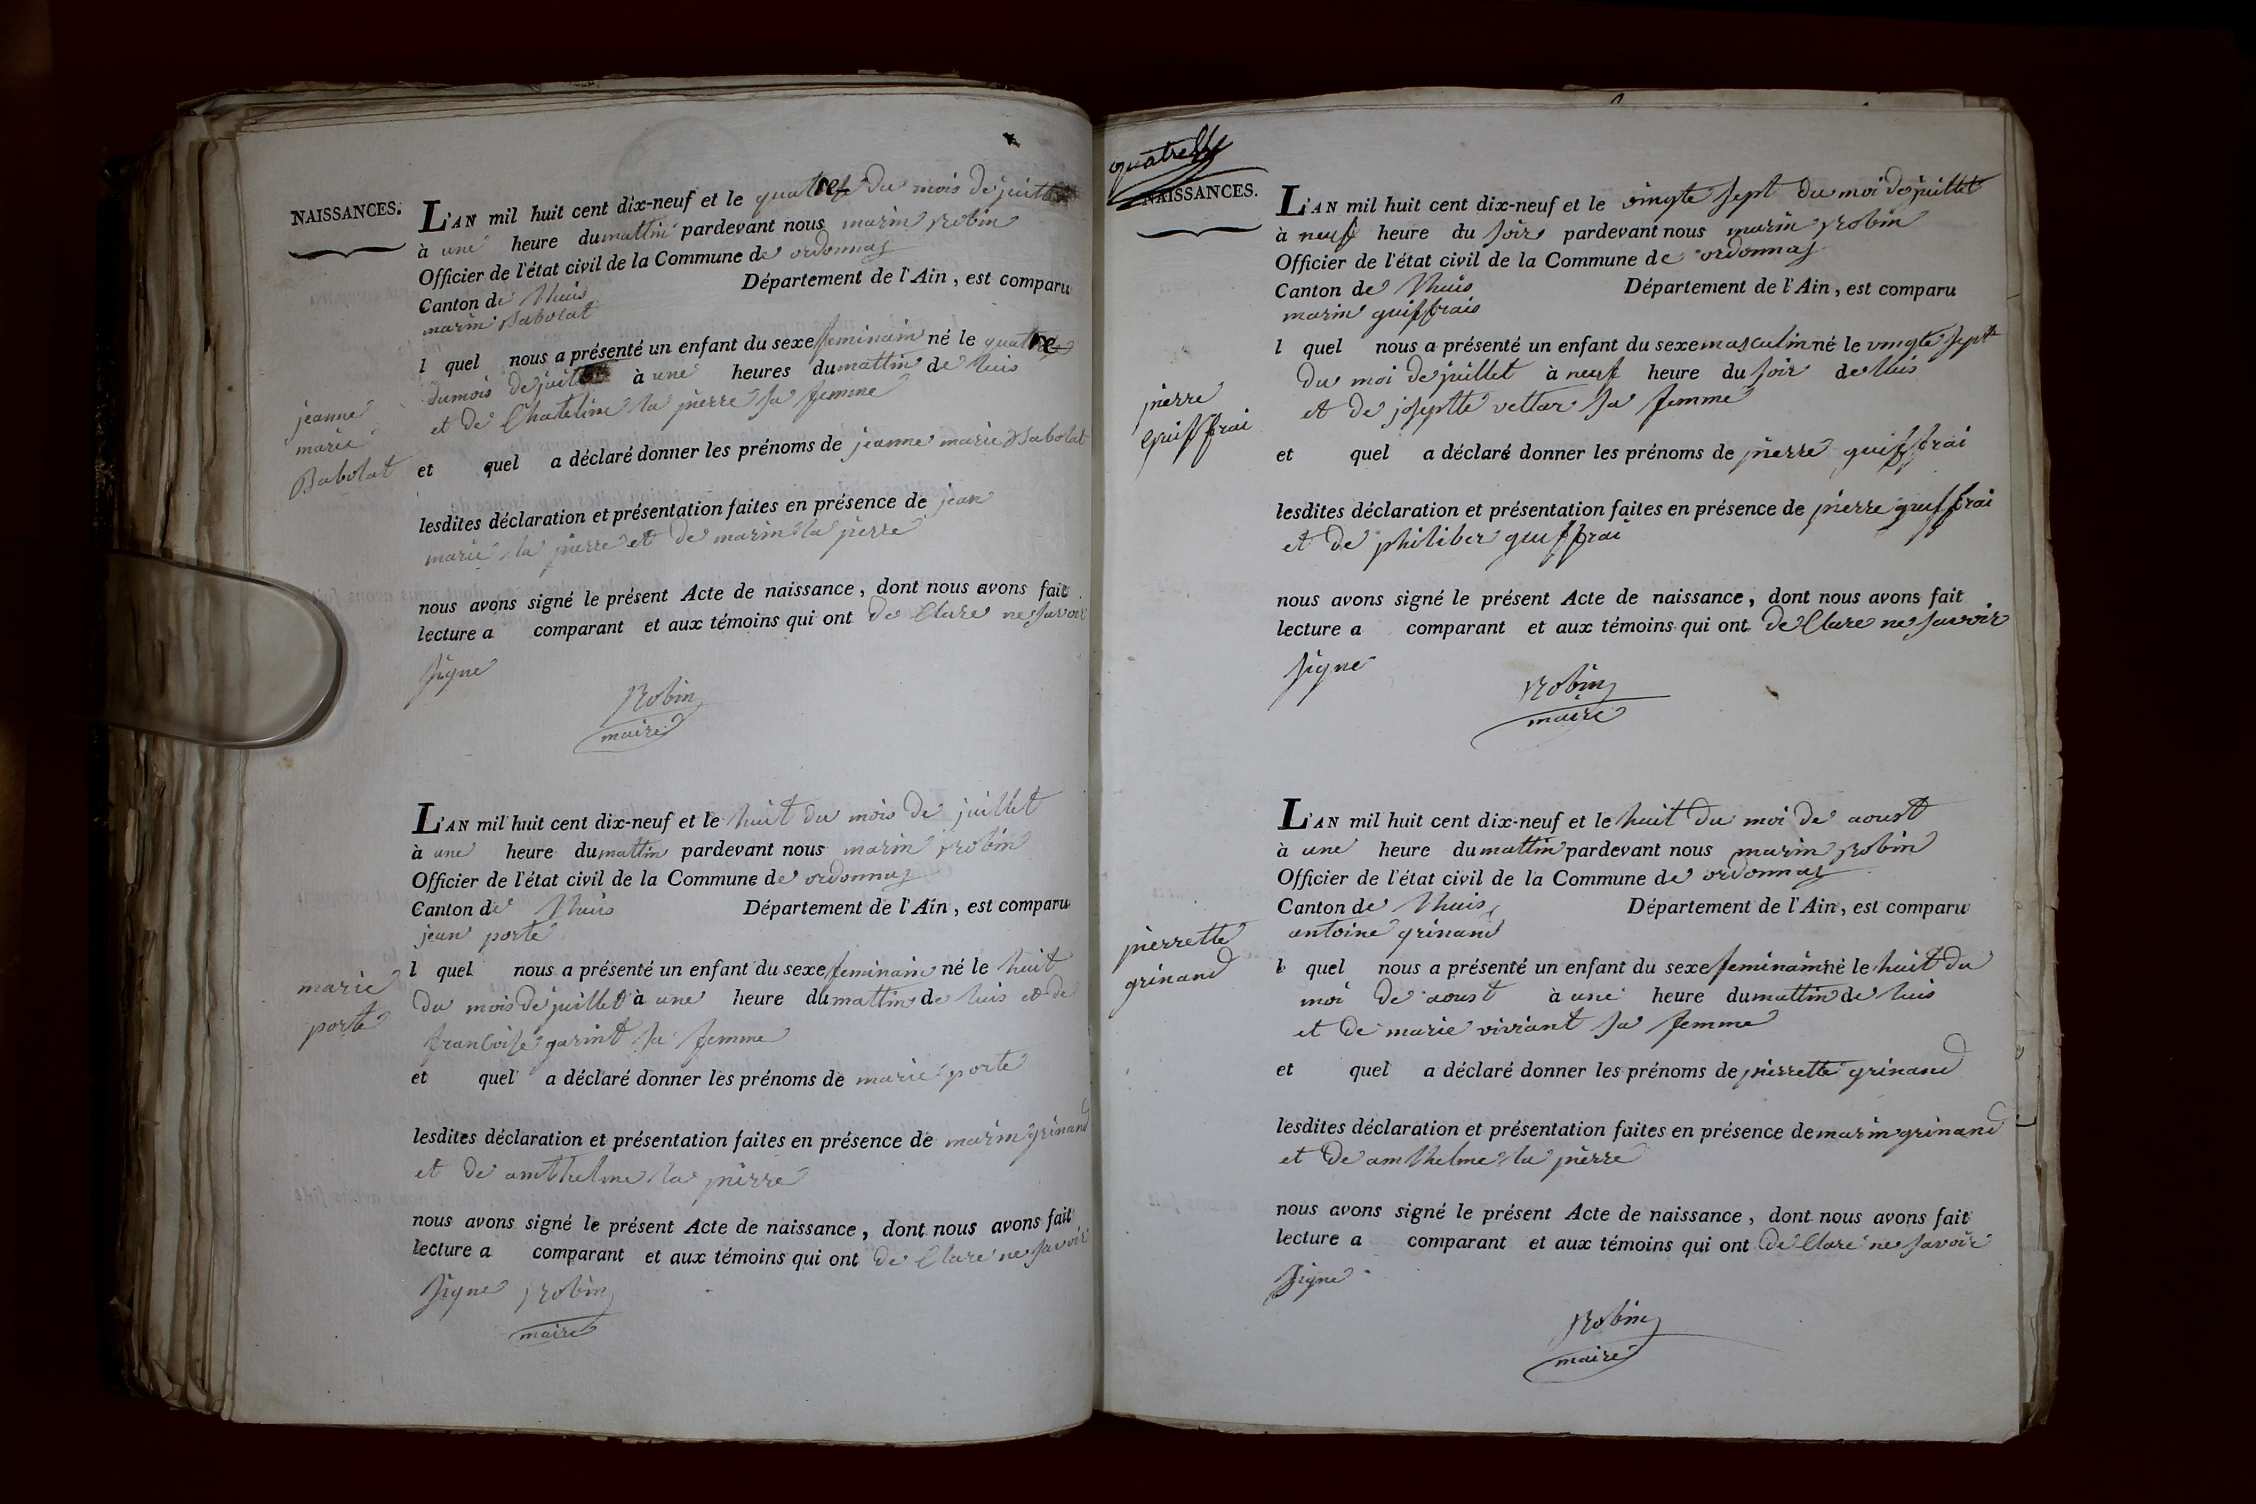 NAISSANCES.
L'AN mil huit cent dix-neuf et le quatre du mois de juillet
à une heure du mattin pardevant nous marin Robin
Officier de l'état civil de la Commune de ordonnas
Canton de lhuis Département de l'Ain, est comparu
marin Babolat
l quel nous a présenté un enfant du sexe feminain né le quatre
du mois de juillet à une heures du mattin de luis
et de Chateline la pierre sa femme
jeanne
marie
Babolat
et quel a déclaré donner les prénoms de jeanne marie Babolat
lesdites déclaration et présentation faites en présence de jean
marie la pierre et de marin la pierre
nous avons signé le présent Acte de naissance, dont nous avons fait
lecture a comparant et aux témoins qui ont de Clare ne savoir
signe
Robin
maire
L'AN mil huit cent dix-neuf et le huit du mois de juillet
à une heure du mattin pardevant nous marin Robin
Officier de l'état civil de la Commune de ordonnas
Canton de lhuis Département de l'Ain, est comparu
jean porte
l quel nous a présenté un enfant du sexe feminain né le huit
du mois de juillet à une heure du mattin de luis et de
franCoise garint sa femme
marie
porte
et quel a déclaré donner les prénoms de marie porte
lesdites déclaration et présentation faites en présence de marin grinand
et de amthelme la pierre
nous avons signé le présent Acte de naissance, dont nous avons fait
lecture a comparant et aux témoins qui ont de Clare ne savoir
signe Robin
maire
NAISSANCES.
L'AN mil huit cent dix-neuf et le vingte sept du moi de juillet
à neuf heure du soir pardevant nous marin Robin
Officier de l'état civil de la Commune de ordonnas
Canton de lhuis Département de l'Ain, est comparu
marin guiffrais
l quel nous a présenté un enfant du sexe masculin né le vingte sept
du moi de juillet à neuf heure du soir de luis
et de joseptte vettar sa femme
pierre
guiffrai
et quel a déclaré donner les prénoms de pierre guiffrai
lesdites déclaration et présentation faites en présence de pierre guiffrai
et de philiber guiffrai
nous avons signé le présent Acte de naissance, dont nous avons fait
lecture a comparant et aux témoins qui ont de Clare ne savoir
signe
Robin
maire
L'AN mil huit cent dix-neuf et le huit du moi de aoust
à une heure du mattin pardevant nous marin Robin
Officier de l'état civil de la Commune de ordonnas
Canton de lhuis Département de l'Ain, est comparu
antoine grinand
l quel nous a présenté un enfant du sexe feminain né le huit du
moi de aoust à une heure du mattin de luis
et de marie viviant sa femme
pierrette
grinand
et quel a déclaré donner les prénoms de pierrette grinand
lesdites déclaration et présentation faites en présence de marin grinand
et de amthelme la pierre
nous avons signé le présent Acte de naissance, dont nous avons fait
lecture a comparant et aux témoins qui ont de Clare ne savoir
signe
Robin
maire